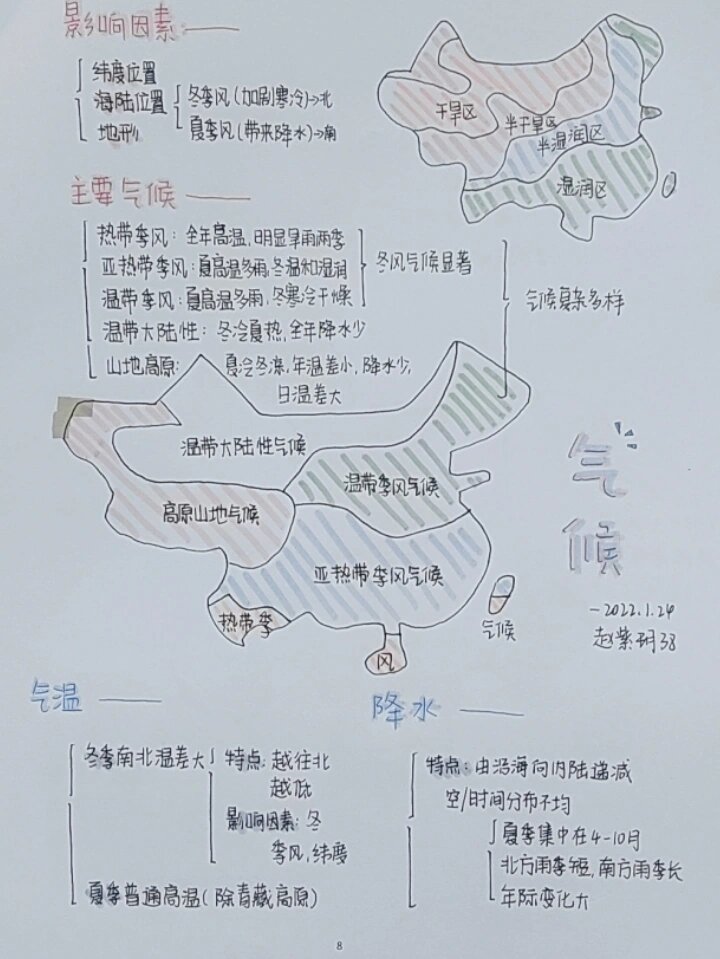 影响因素：
纬度位置
海陆位置 冬季风(加剧寒冷)→北
地形 夏季风(带来降水)→南
干旱区
半干旱区
半湿润区
湿润区
主要气候
热带季风：全年高温，明显旱雨两季
亚热带季风：夏高温多雨，冬温和湿润
温带季风：夏高温多雨，冬寒冷干燥
温带大陆性：冬冷夏热，全年降水少
山地高原： 夏冷冬凉，年温差小，降水少，
日温差大
冬风气候显著
气候复杂多样
温带大陆性气候
温带季风气候
高原山地气候
亚热带季风气候
热带季
风
气候
气候
-2022.1.24
赵紫玥38
气温
冬季南北温差大 特点：越往北
越低
影响因素：冬
季风，纬度
夏季普通高温(除青藏高原)
降水
特点：由沿海向内陆递减
空/时间分布不均
夏季集中在4-10月
北方雨季短，南方雨季长
年际变化大
8